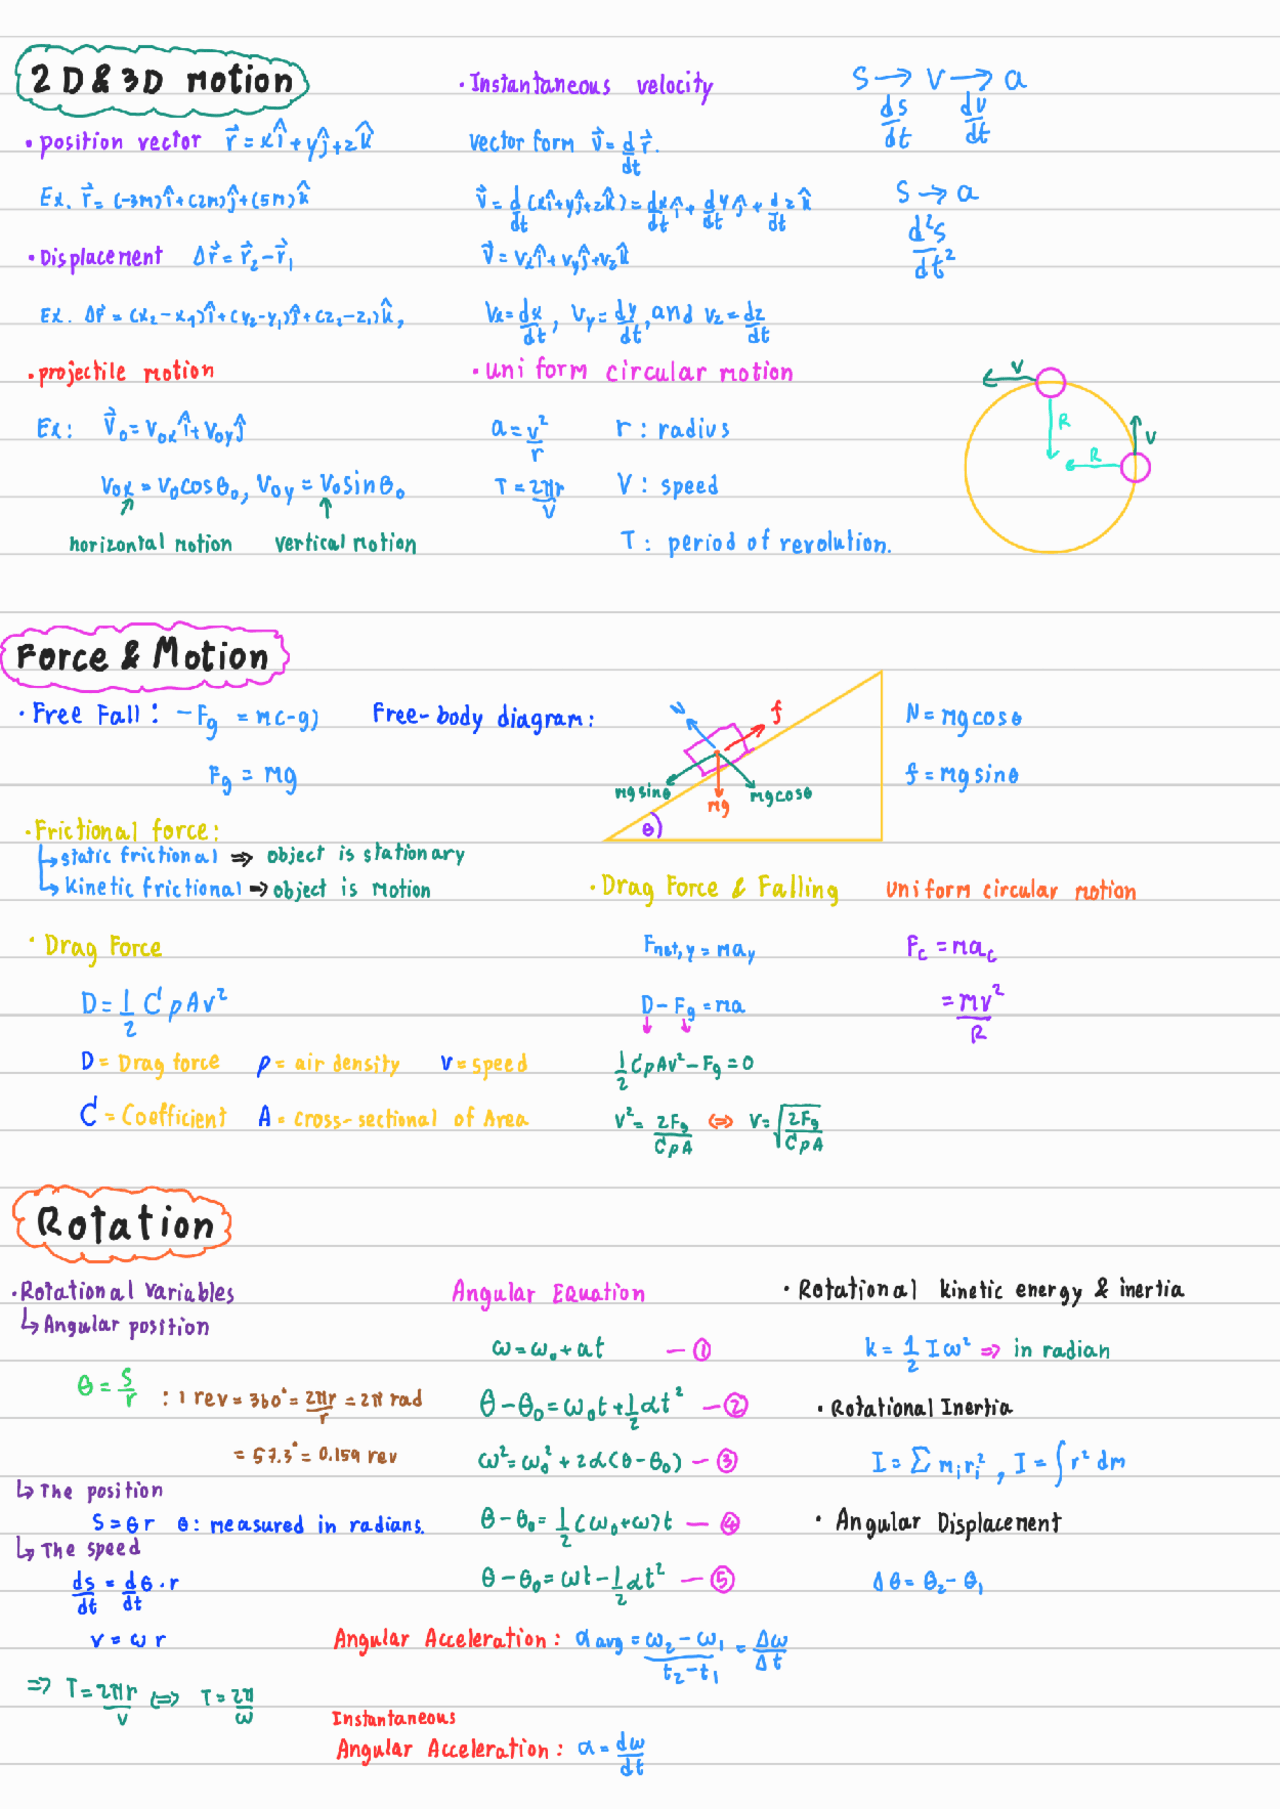 2D & 3D motion
• position vector r⃗ = xî + yĵ + zk̂
Ex. r⃗ = (-3m)î + (2m)ĵ + (5m)k̂
• Displacement Δr⃗ = r⃗₂ - r⃗₁
Ex. Δr⃗ = (x₂ - x₁)î + (y₂ - y₁)ĵ + (z₂ - z₁)k̂,
• projectile motion
Ex: V⃗₀ = V₀ₓî + V₀yĵ
V₀ₓ = V₀cosθ₀, V₀y = V₀sinθ₀
horizontal motion vertical motion
• Instantaneous velocity
vector form v⃗ = d/dt r⃗.
v⃗ = d/dt (xî + yĵ + zk̂) = dx/dt î + dy/dt ĵ + dz/dt k̂
v⃗ = vₓî + vyĵ + vzk̂
Vₓ = dx/dt, Vy = dy/dt, and Vz = dz/dt
• uniform circular motion
a = v²/r r : radius
T = 2πr/v V : speed
T : period of revolution.
S → V → a
ds/dt dv/dt
S → a
d²s/dt²
V
R
R
V
Force & Motion
• Free Fall : -Fg = m(-g)
Fg = mg
• Frictional force :
↳ static frictional ⇒ object is stationary
↳ kinetic frictional ⇒ object is motion
• Drag Force
D = 1/2 CρAv²
D = Drag force ρ = air density v = speed
C = Coefficient A = cross-sectional of Area
Free-body diagram :
N
f
mgsinθ
mg
mgcosθ
θ
N = mgcosθ
f = mgsinθ
• Drag Force & Falling
Fnet,y = may
D - Fg = ma
1/2 CρAv² - Fg = 0
v² = 2Fg/CρA ⇔ v = √(2Fg/CρA)
Uniform circular motion
Fc = mac
= mv²/R
Rotation
• Rotational variables
↳ Angular position
θ = s/r : 1 rev = 360° = 2πr/r = 2π rad
= 57.3° = 0.159 rev
↳ The position
S = θr θ : measured in radians.
↳ The speed
ds/dt = d/dt θ · r
v = ωr
⇒ T = 2πr/v ⇔ T = 2π/ω
Angular Equation
ω = ω₀ + αt — ①
θ - θ₀ = ω₀t + 1/2 αt² — ②
ω² = ω₀² + 2α(θ - θ₀) — ③
θ - θ₀ = 1/2 (ω₀ + ω)t — ④
θ - θ₀ = ωt - 1/2 αt² — ⑤
Angular Acceleration : αavg = (ω₂ - ω₁)/(t₂ - t₁) = Δω/Δt
Instantaneous
Angular Acceleration : α = dω/dt
• Rotational kinetic energy & inertia
k = 1/2 Iω² ⇒ in radian
• Rotational Inertia
I = Σmᵢrᵢ², I = ∫r²dm
• Angular Displacement
Δθ = θ₂ - θ₁